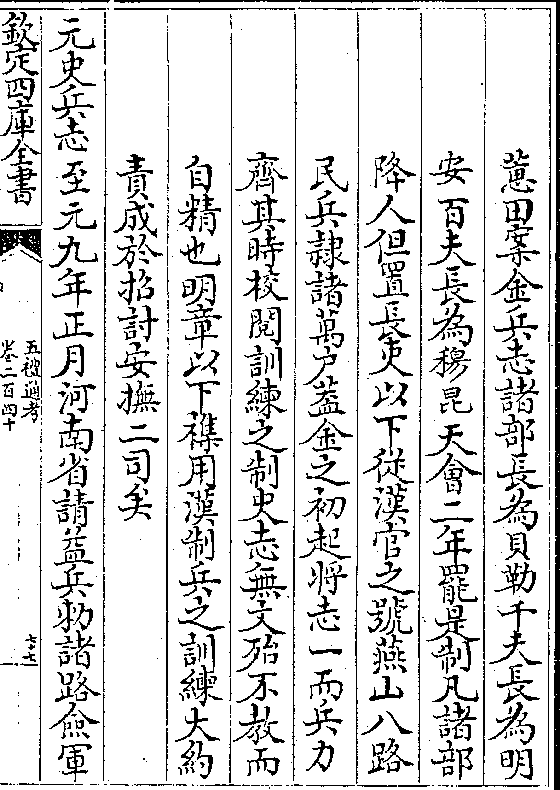 蕙田案金兵志諸部長為貝勒千夫長為明
安百夫長為穆昆天會二年罷是制凡諸部
降人但置長吏以下從漢官之號燕山八路
民兵隷諸萬户葢金之初起將志一而兵力
齊其時校閱訓練之制史志無文殆不教而
自精也明章以下襍用漢制兵之訓練大約
責成於招討安撫二司矣
元史兵志至元九年正月河南省請益兵勅諸路僉軍
欽定四庫全書
五禮通考
卷二百四十
七十七